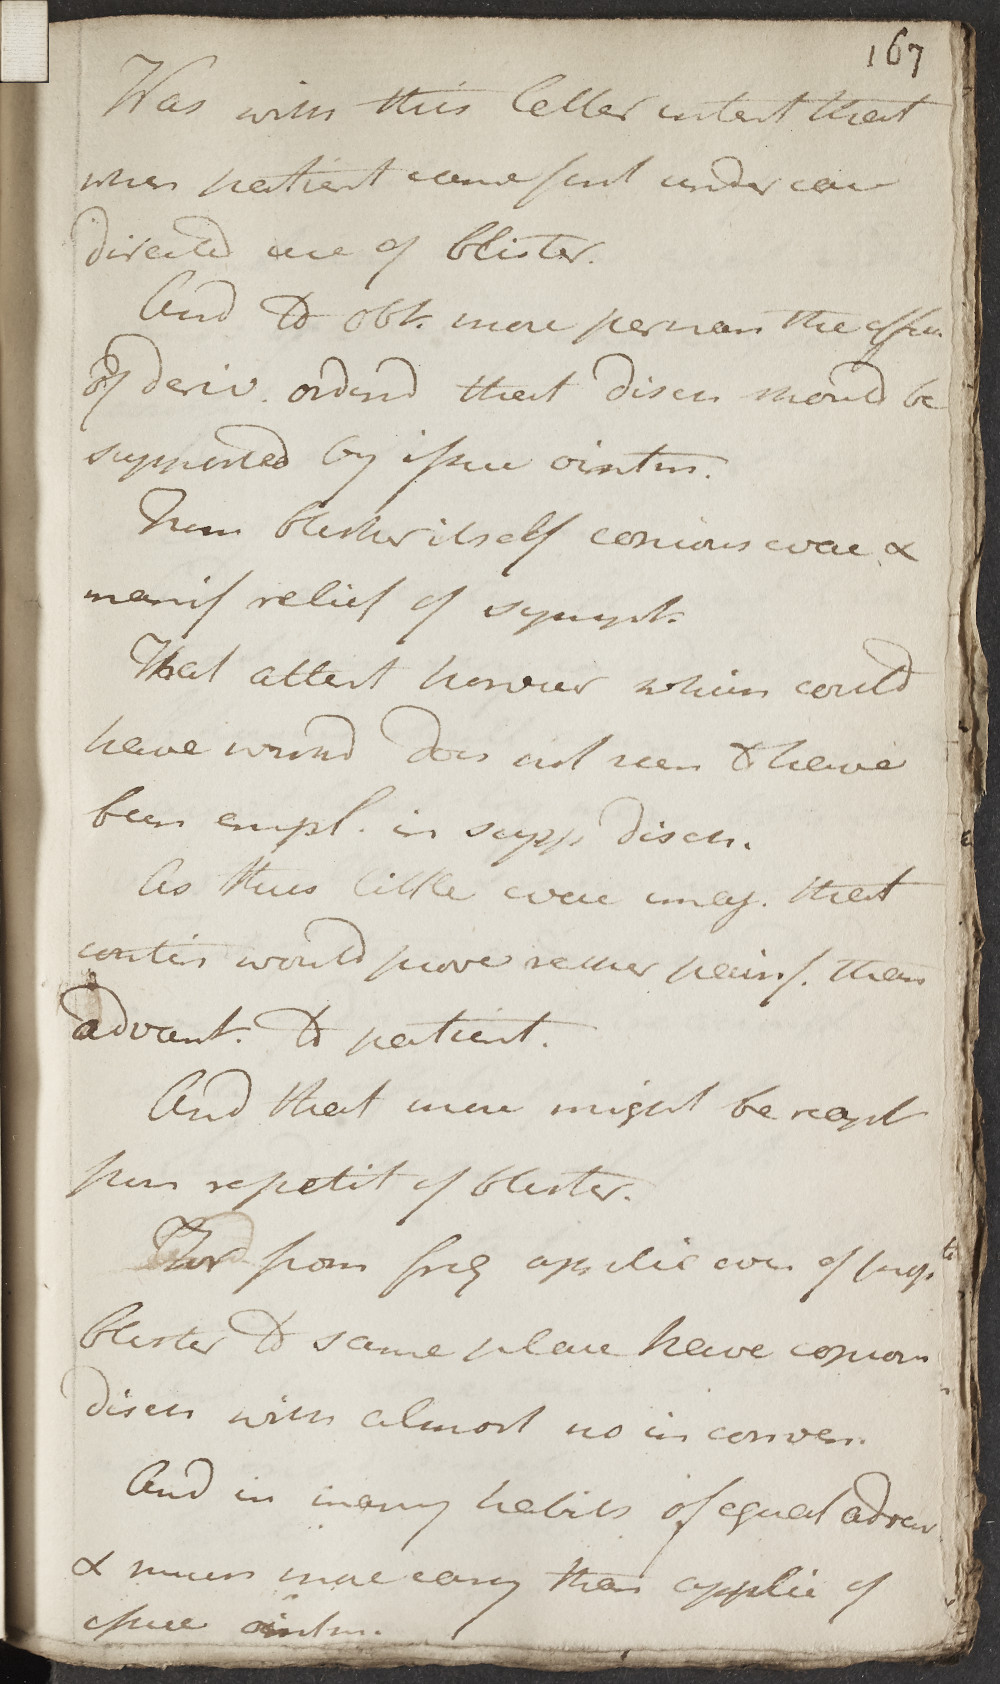 167
Was with this latter intent that
when patient came first under care
directed use of blister.
And to obt. more perman the effect
of deriv. ordered that disch should be
supported by issue ointm.
From blister itself copious evac &
manif relief of sympt.
What attent however which could
have wishd does not seem to have
been empl. in supp disch.
As thus little evac imag. that
contin would prove rather painf. than
advant. to patient.
And that more might be expt
from repetit of blister.
For from freq applic even of
blister to same place have copious
disch with almost no inconven.
And in many habits of equal advan
& much more easy than applic of
issue ointm.